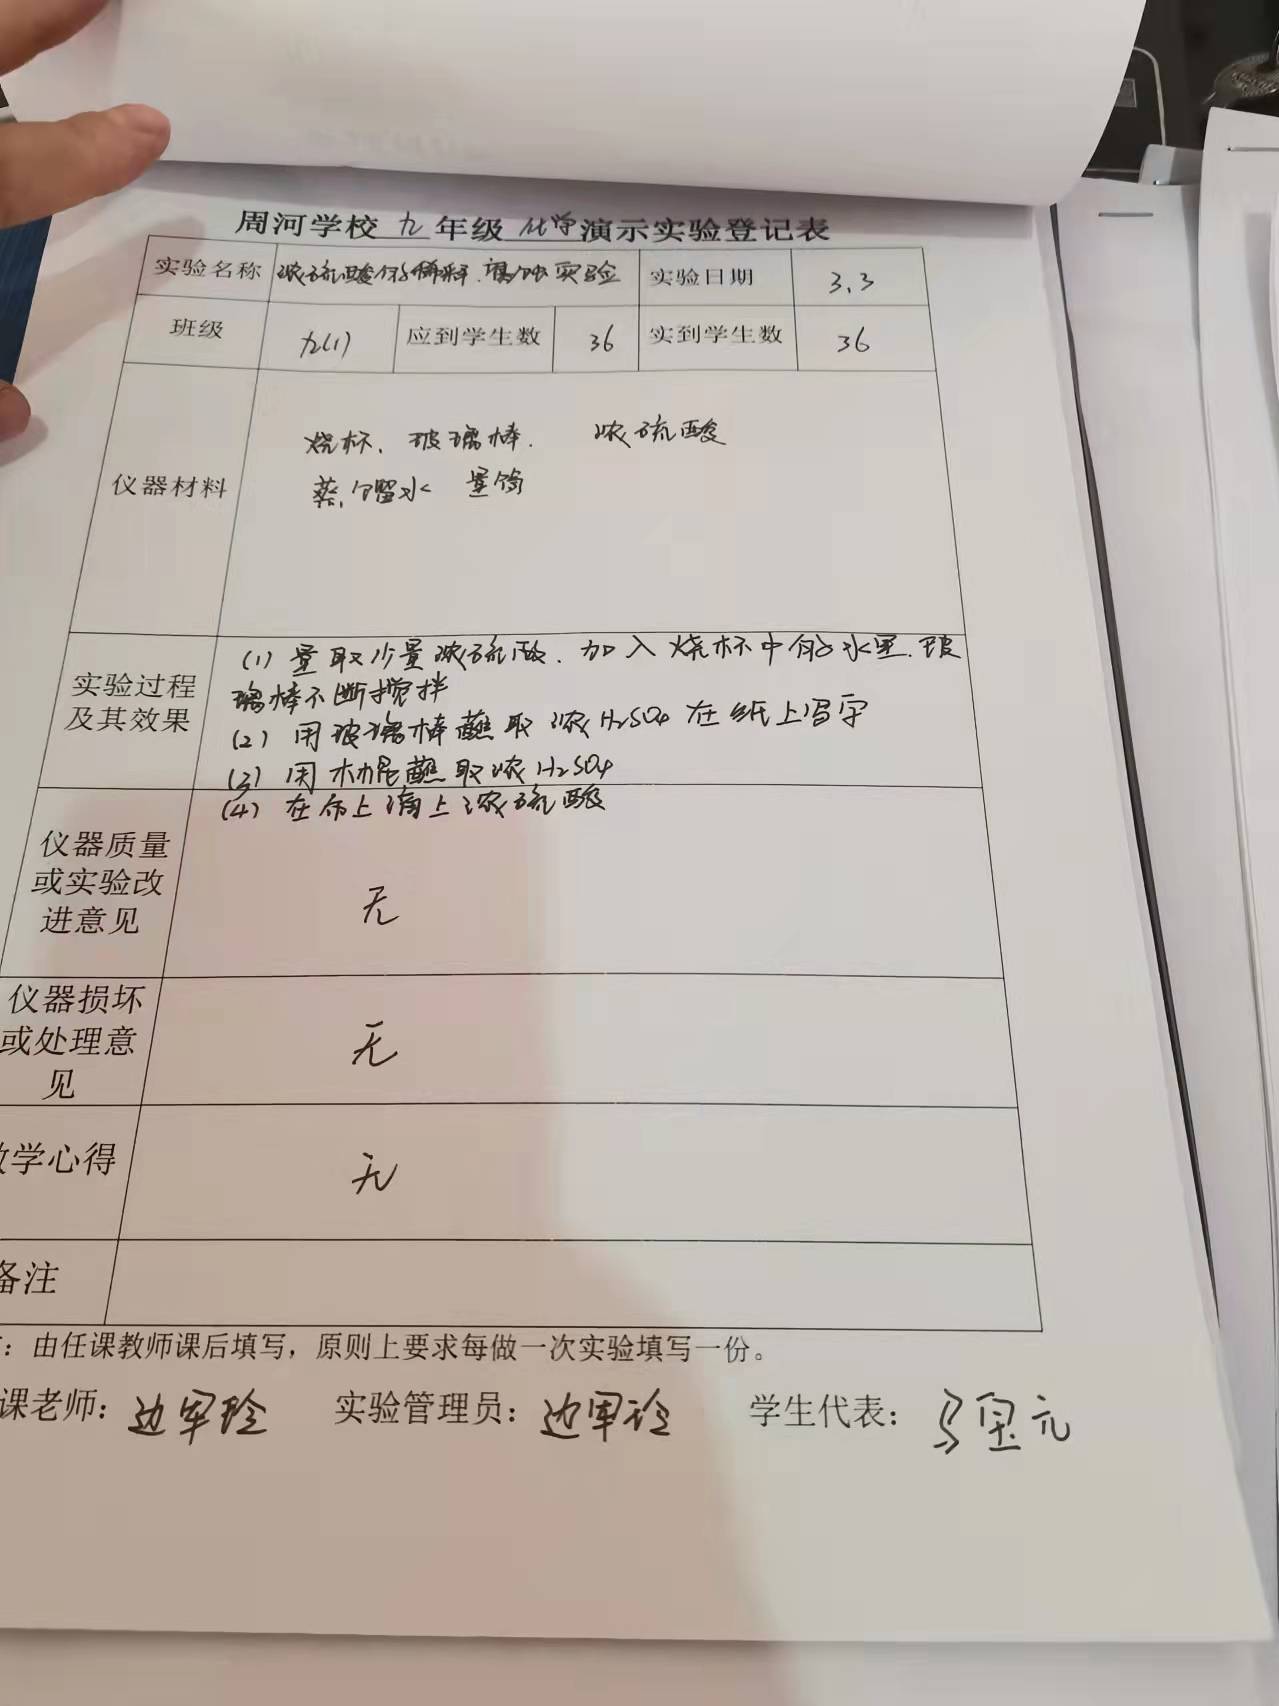 周河学校 九 年级 化学 演示实验登记表
实验名称 浓硫酸的稀释.腐蚀实验 实验日期 3.3
班级 九(1) 应到学生数 36 实到学生数 36
烧杯、玻璃棒. 浓硫酸
仪器材料 蒸馏水 量筒
(1) 量取少量浓硫酸.加入烧杯中的水里.玻
实验过程 璃棒不断搅拌
及其效果 (2) 用玻璃棒蘸取浓H₂SO₄在纸上写字
(3) 用木棍蘸取浓H₂SO₄
(4) 在布上滴上浓硫酸
仪器质量
或实验改 无
进意见
仪器损坏
或处理意 无
见
学心得 无
备注
：由任课教师课后填写，原则上要求每做一次实验填写一份。
课老师：边军玲 实验管理员：边军玲 学生代表：马 元